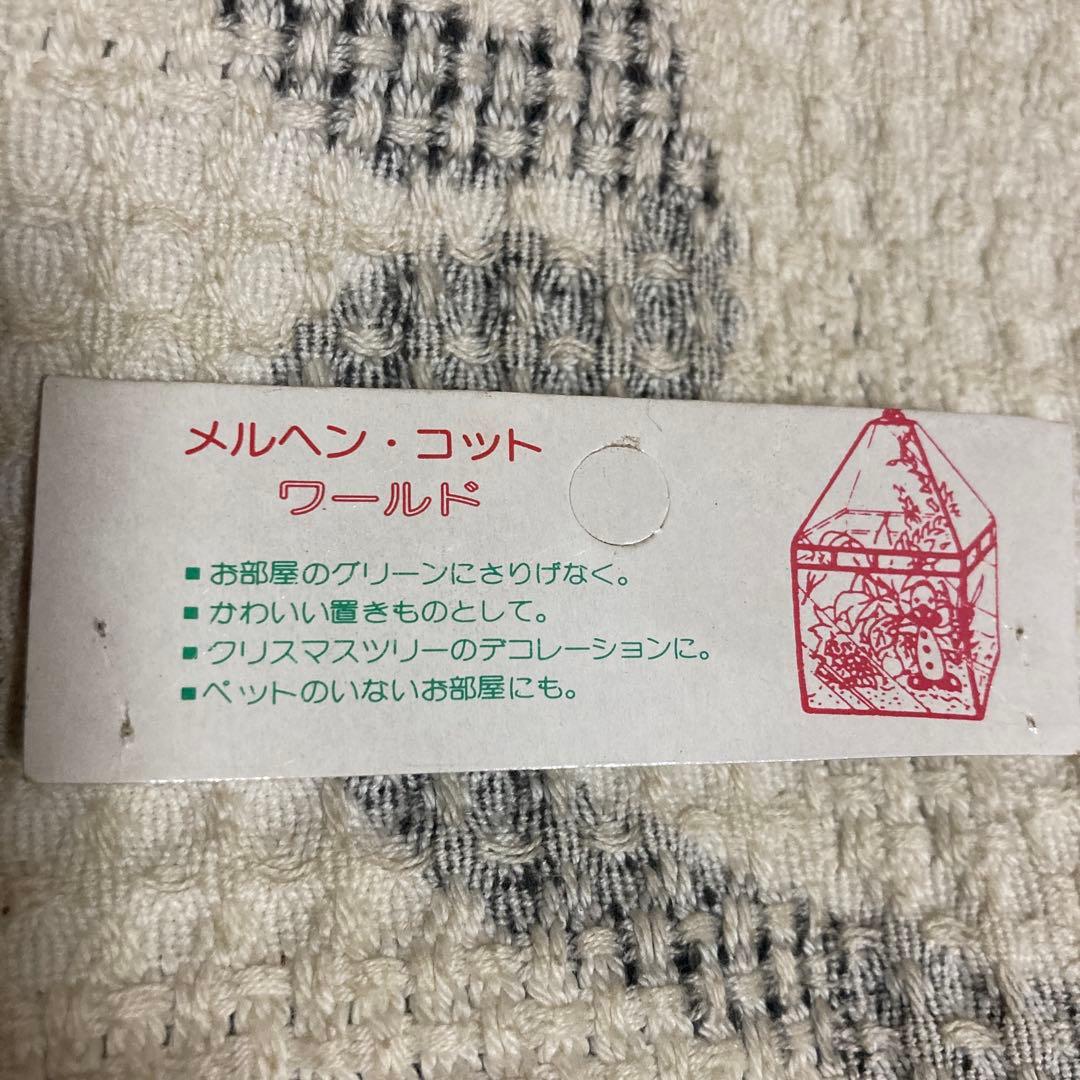 メルヘン・コット
ワールド
■お部屋のグリーンにさりげなく。
■かわいい置きものとして。
■クリスマスツリーのデコレーションに。
■ペットのいないお部屋にも。